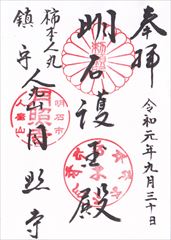 奉拝
令和元年九月三十日
明石護玉殿
柿本人丸
鎮守
人丸山月照寺
明石市
月照寺
人麿山